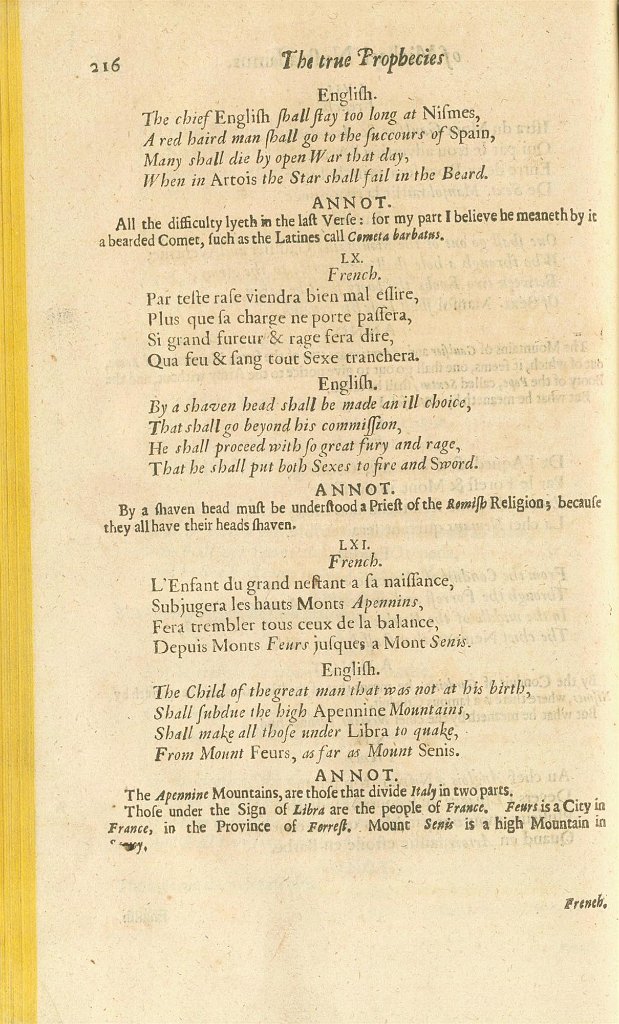 216 The true Prophecies
Engliſh.
The chief Engliſh ſhall ſtay too long at Niſmes,
A red haird man ſhall go to the ſuccours of Spain,
Many shall die by open War that day,
When in Artois the Star shall fail in the Beard.
ANNOT.
All the difficulty lyeth in the laſt Verſe: for my part I believe he meaneth by it
a bearded Comet, ſuch as the Latines call Cometa barbatus.
LX.
French.
Par teſte raſe viendra bien mal eſlire,
Plus que ſa charge ne porte paſſera,
Si grand fureur & rage fera dire,
Qua feu & ſang tout Sexe tranchera.
Engliſh.
By a shaven head shall be made an ill choice,
That shall go beyond his commiſſion,
He shall proceed with ſo great fury and rage,
That he shall put both Sexes to fire and Sword.
ANNOT.
By a ſhaven head muſt be underſtood a Prieſt of the Romiſh Religion; becauſe
they all have their heads ſhaven.
LXI.
French.
L'Enfant du grand neſtant a ſa naiſſance,
Subjugera les hauts Monts Apennins,
Fera trembler tous ceux de la balance,
Depuis Monts Feurs juſques a Mont Senis.
Engliſh.
The Child of the great man that was not at his birth,
Shall ſubdue the high Apennine Mountains,
Shall make all thoſe under Libra to quake,
From Mount Feurs, as far as Mount Senis.
ANNOT.
The Apennine Mountains, are thoſe that divide Italy in two parts.
Thoſe under the Sign of Libra are the people of France. Feurs is a City in
France, in the Province of Forreſt. Mount Senis is a high Mountain in
French.